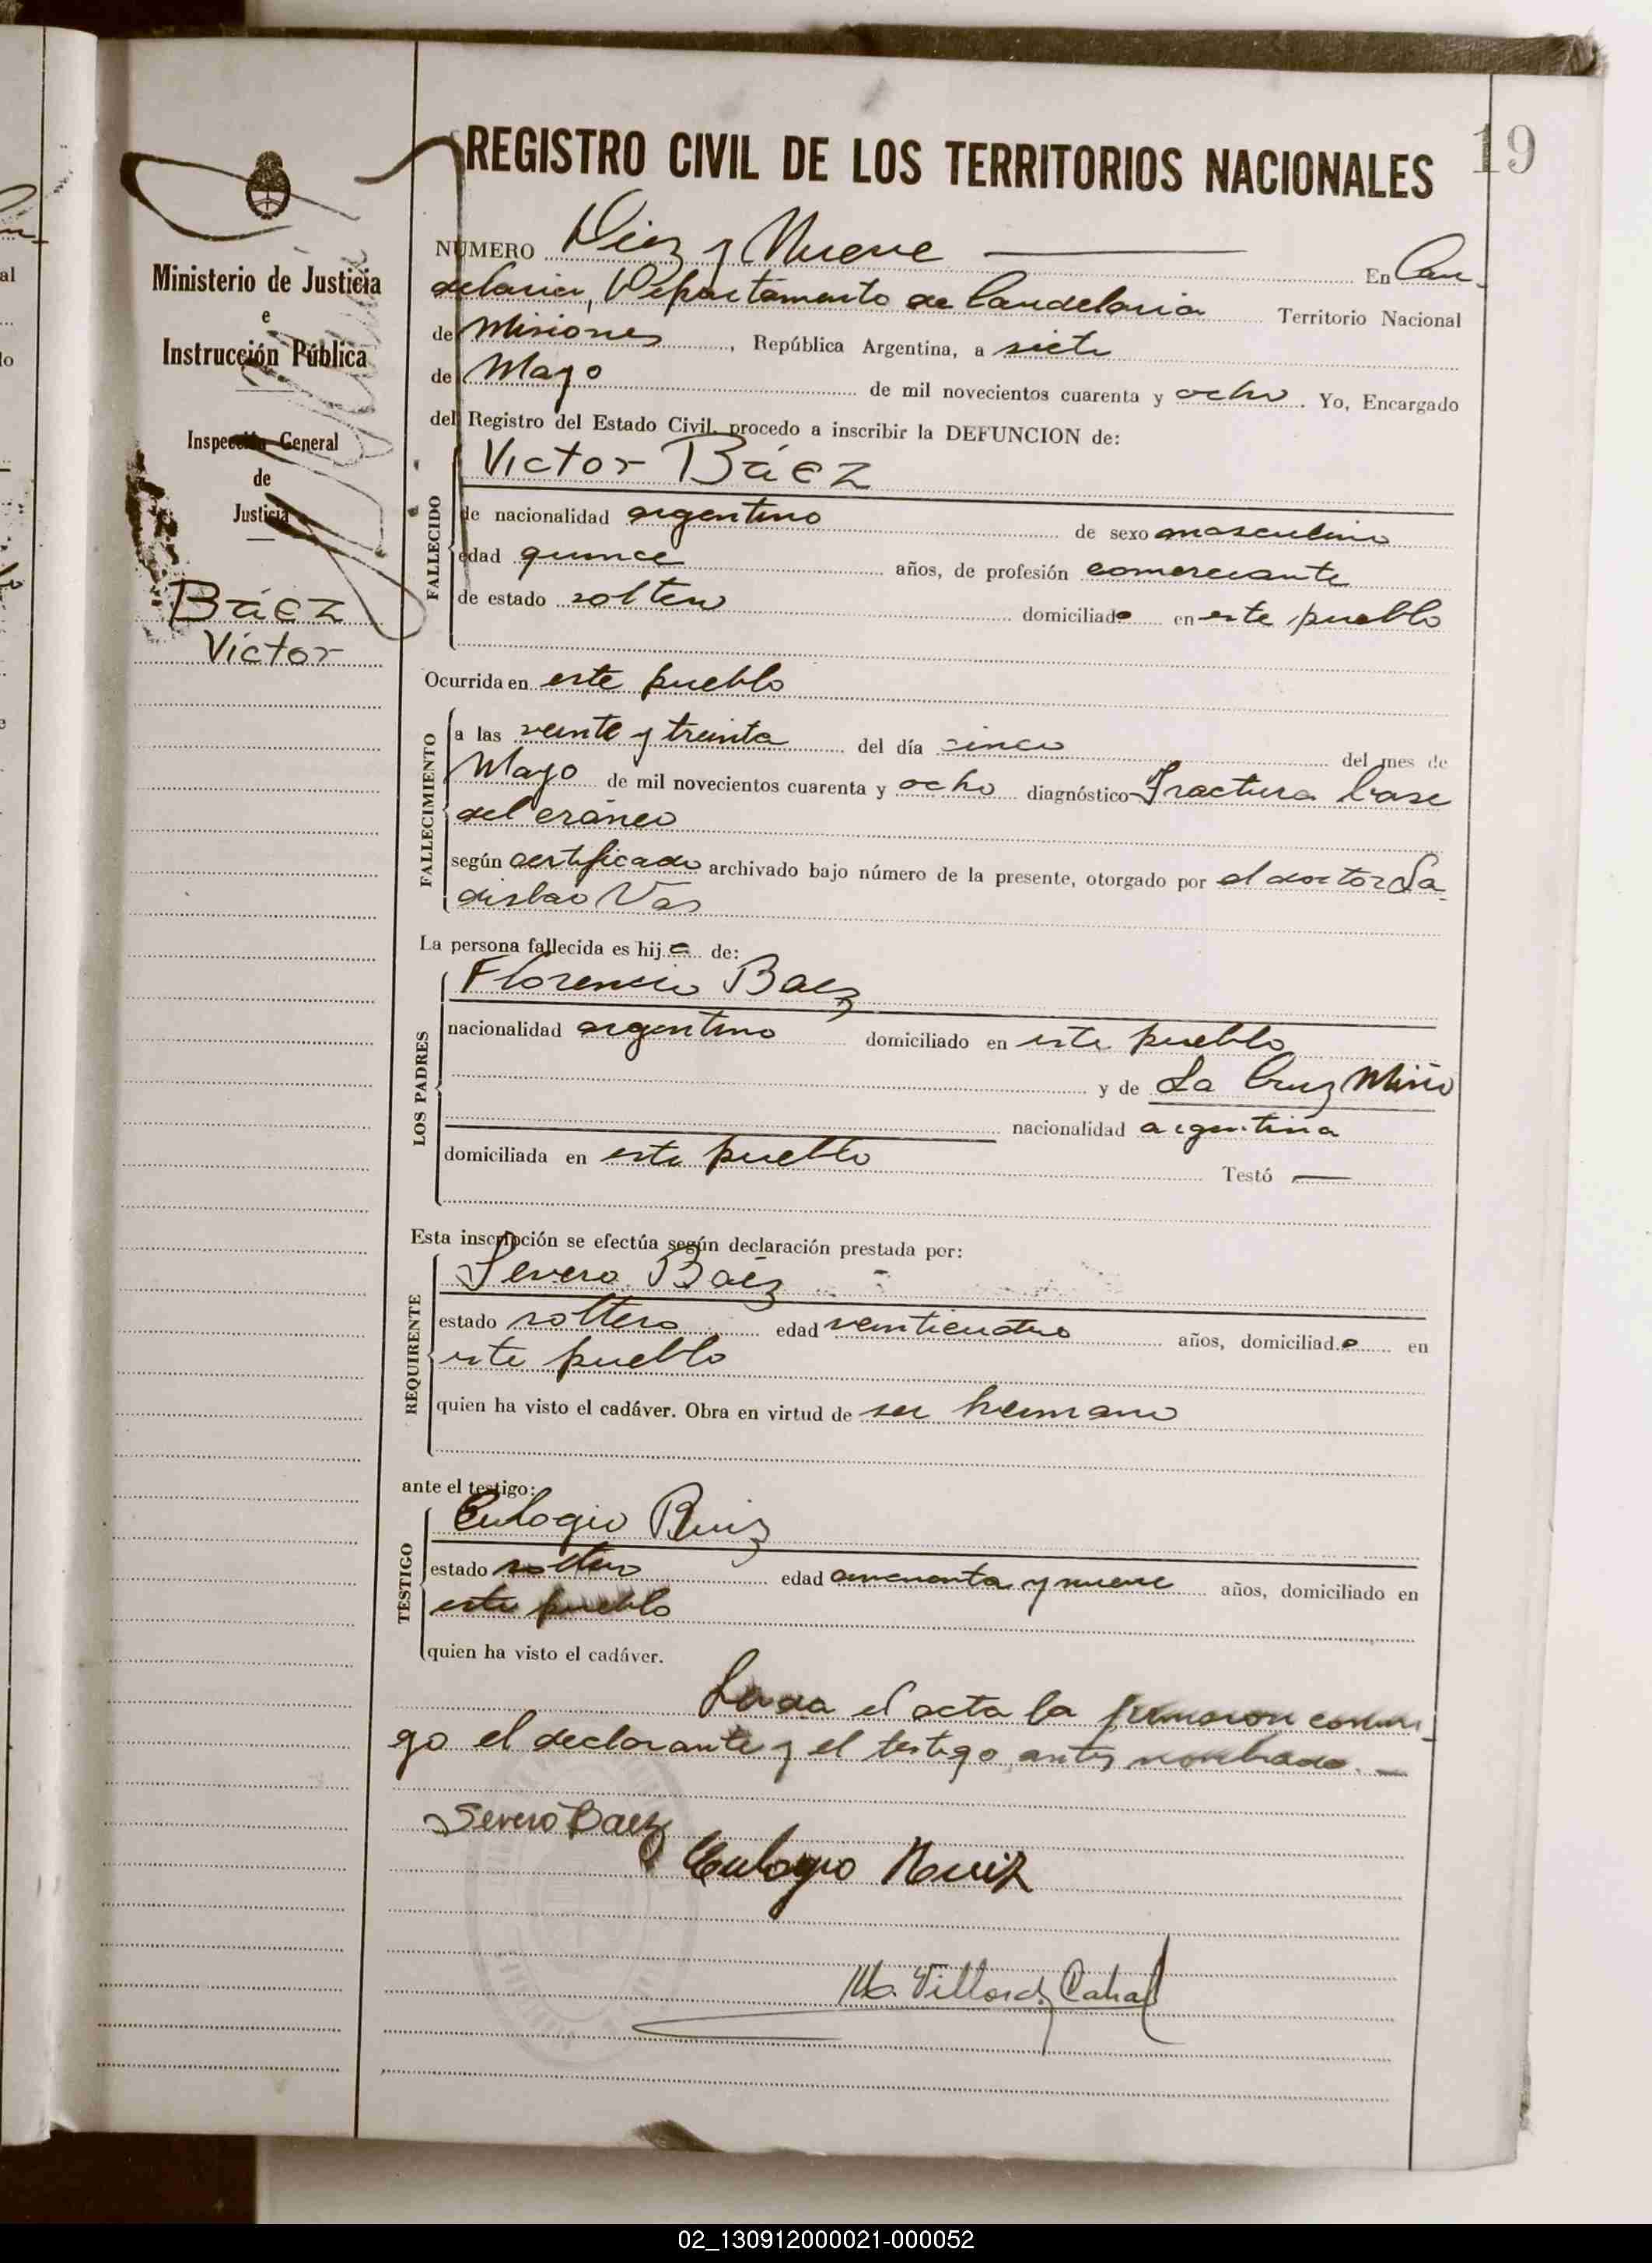 REGISTRO CIVIL DE LOS TERRITORIOS NACIONALES
19
Ministerio de Justicia
e
Instrucción Pública
Inspección General
de
Justicia
Báez
Víctor
NUMERO Diez y Nueve En Can-
delaria, Departamento de Candelaria Territorio Nacional
de Misiones, República Argentina, a siete
de Mayo de mil novecientos cuarenta y ocho. Yo, Encargado
del Registro del Estado Civil, procedo a inscribir la DEFUNCION de:
Victor Báez
FALLECIDO
de nacionalidad argentino de sexo masculino
edad quince años, de profesión comerciante
de estado soltero domiciliado en este pueblo
Ocurrida en este pueblo
FALLECIMIENTO
a las veinte y treinta del día cinco del mes de
Mayo de mil novecientos cuarenta y ocho diagnóstico Fractura base
del cráneo
según certificado archivado bajo número de la presente, otorgado por el doctor La-
dislao Vas
La persona fallecida es hij o de:
LOS PADRES
Florencio Baez
nacionalidad argentino domiciliado en este pueblo
y de La Cruz Miño
nacionalidad argentina
domiciliada en este pueblo Testó —
Esta inscripción se efectúa según declaración prestada por:
REQUIRENTE
Severo Baéz
estado soltero edad veinticuatro años, domiciliado en
este pueblo
quien ha visto el cadáver. Obra en virtud de ser hermano
ante el testigo:
TESTIGO
Eulogio Ruiz
estado soltero edad y nueve años, domiciliado en
este pueblo
quien ha visto el cadáver.
Leida el acta la firmaron conmi-
go el declarante y el testigo antes nombrado. —
Severo Baez
Eulogio Ruiz
02_130912000021-000052